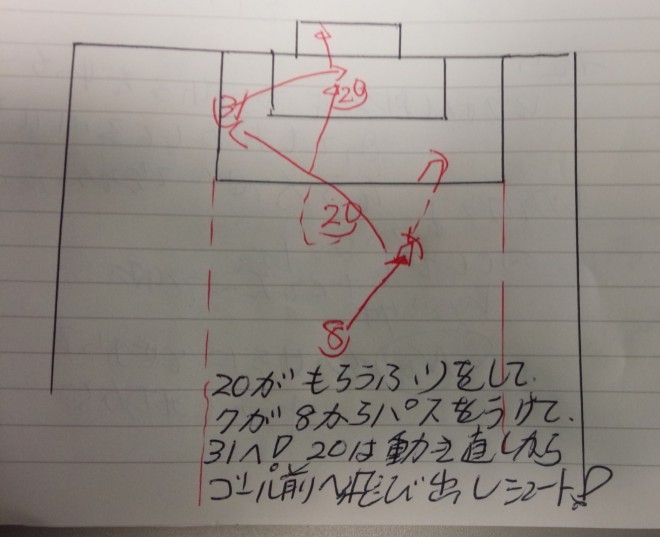 31
20
20
8
20がもらうふりをして.
7が8からパスをうけて.
31へ 20は動き直しから
ゴール前へ飛び出しシュート!